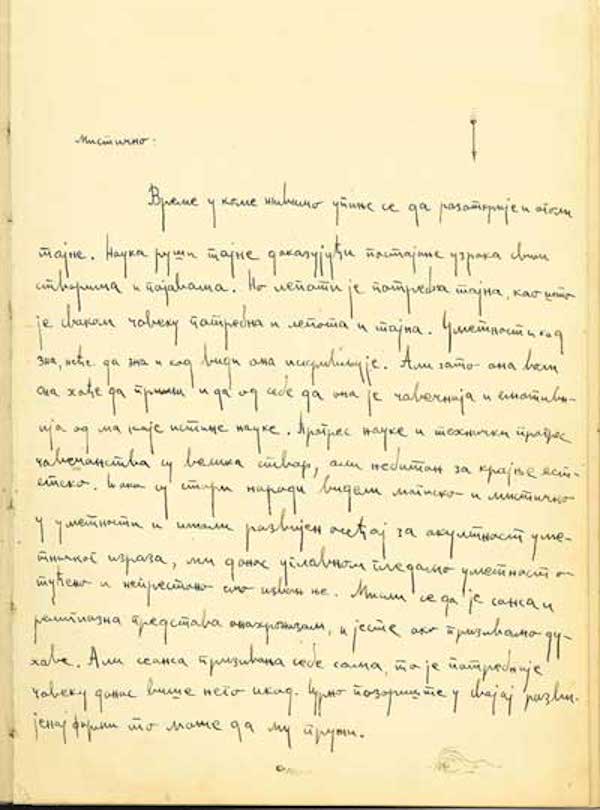 Мистично:
Време у коме живимо упиње се да разоткрије и оголи
тајне. Наука руши тајне доказујући постојање узрока свим
стварима и појавама. Но лепоти је потребна тајна, као што
је сваком човеку потребна и лепота и тајна. Уметност и кад
зна, неће да зна и кад види она искривљује. Али зато она воли
она хоће да и да од себе да она је човечнија и емотивн-
ија од ма које истине науке. Прогрес науке и технички прогрес
човечанства су велика ствар, али небитан за крајње ест-
етско. су стари народи видели магиско и мистично
у уметности и имали развијен осећај за окултност уме-
тничког израза, ми данас углавном гледамо уметност о-
туђено и непрестано смо изван ње. Мисли се да је сеанса и
религиозна представа анахронизам, и јесте ако призивамо ду-
хове. Али сеанса призивана себе сама, то је потребније
човеку данас више него икад. Црно позориште у својој разви-
јеној форми то може да му пружи.